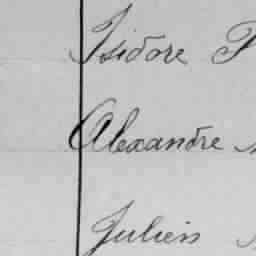 Isidore
Alexandre
Julien